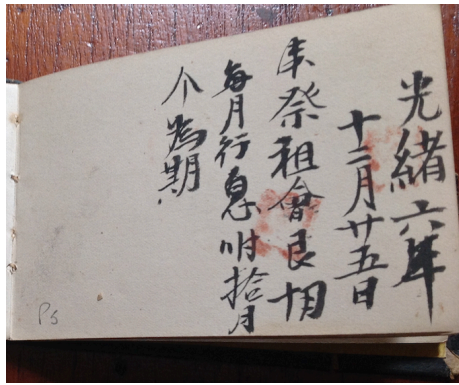 光緒六年
十二月廿五日
祭祖會艮
每月行息拾月
个為期
P5